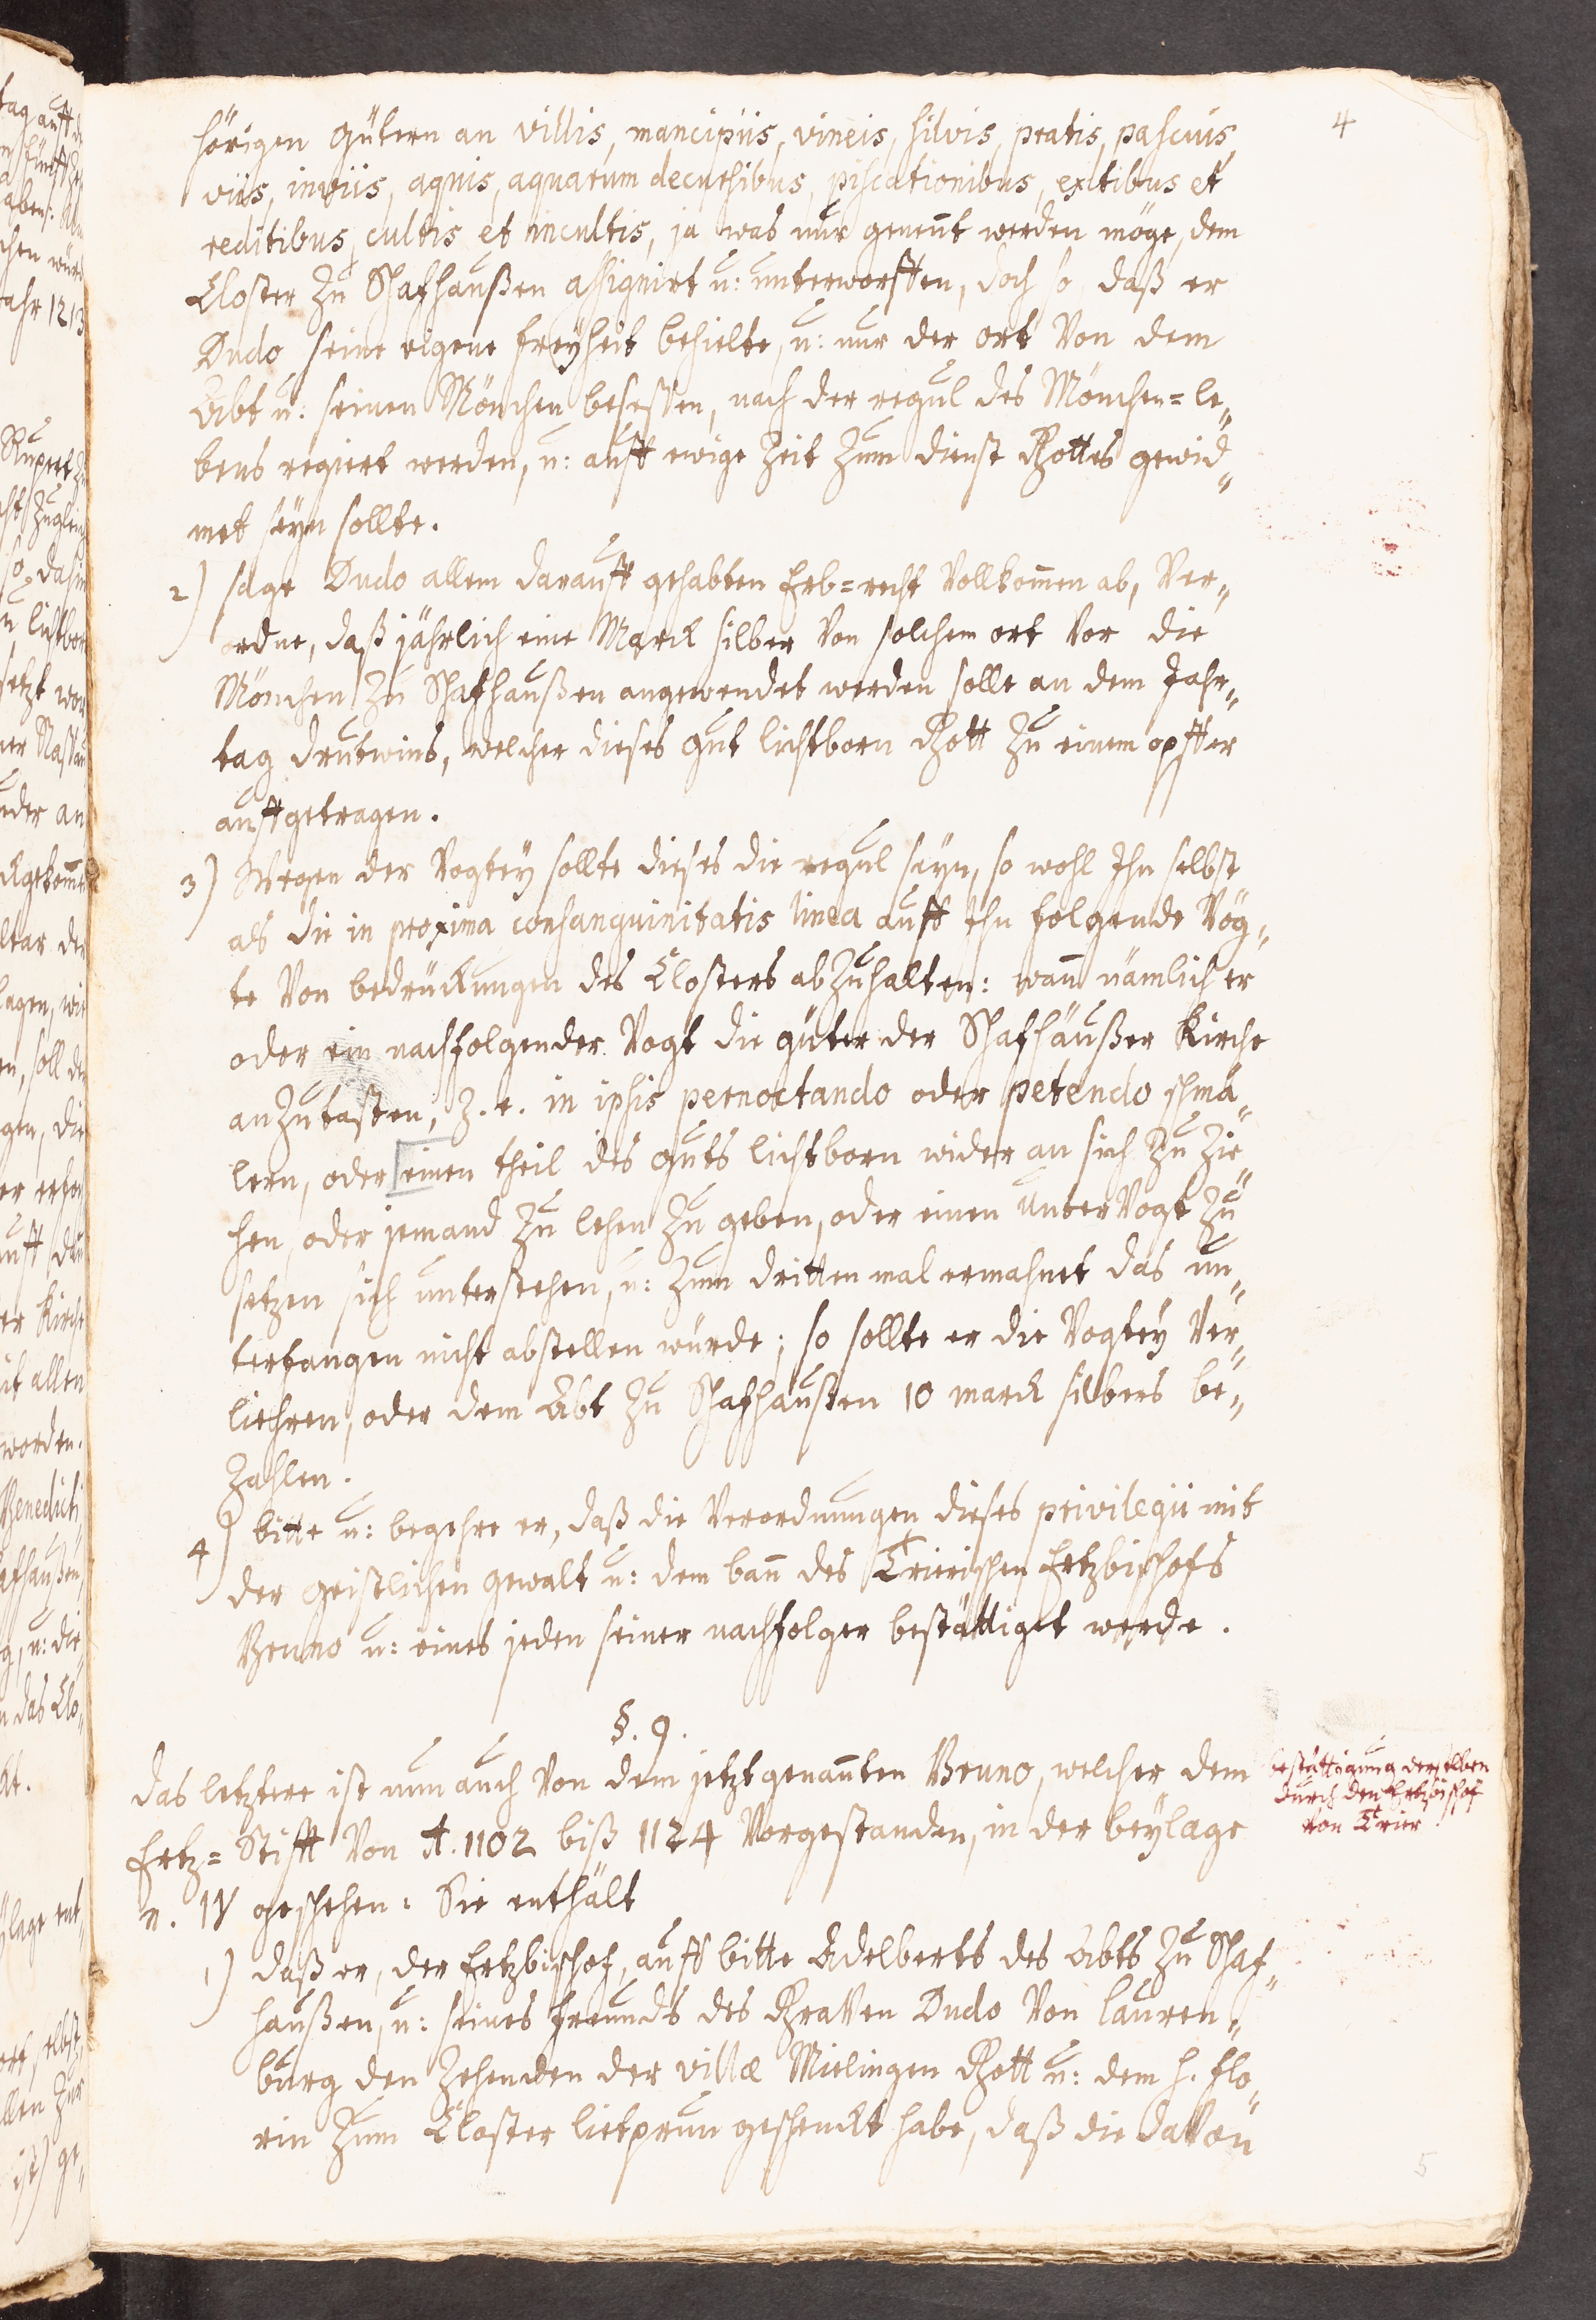 4
hörigen gütern an villis, mancipiis, vineis, silvis, pratis, pascuis,
viis, inviis, aquis, aquarum decursibus, piscationibus, exitibus et
reditibus, cultis et incultis, ja was nur genent werden möge, dem
Closter zu Schafhaußen assignirt u: unterworffen, doch so daß er
Dudo seine eigene freyheit behielte, u: nur der ort von dem
Abt u: seinen Mönchen besessen, nach der regul des Mönchen=le„
bens regiert werden, u: auff ewige Zeit zum dienst Gottes gewid„
met seyn sollte.
2) sage Dudo allem darauff gehabten Erb=recht vollkom̄en ab, Ver„
ordne, daß jährlich eine Marck silber von solchem ort vor die
Mönchen zu Schafhaußen angewendet werden solle an dem Jahr„
tag Drutwins, welcher dieses gut lichtborn Gott zu einem opffer
auffgetragen.
3) Wegen der Vogtey sollte dieses die regul seyn, so wohl Ihn selbst
als die in proxima consanguinitatis linea auff ihn folgende Vög„
te von bedruckungen des Closters abzuhalten: wan̄ nämlich er
oder ein nachfolgender Vogt die güter der Schafhäußer Kirche
anzutasten, z. e. in ipsis pernoctando oder petendo schmä„
lern, oder einen theil des guts lichtborn wider an sich zu zie„
hen, oder jemand zu lehen zu geben, oder einen unterVogt zu
setzen sich unterstehen, u: zum dritten mal ermahnet das un„
terfangen nicht abstellen würde; so sollte er die Vogtey ver„
liehren, oder dem Abt zu Schafhaußen 10 marck silbers be„
zahlen.
4) bitte u: begehre er, daß die Verordnungen dieses privilegii mit
der geistlichen gewalt u: dem ban̄ des Trierischen Ertzbischofs
Bruno u: eines jeden seiner nachfolger bestättiget werde.
§. 9.
das letztere ist nun auch von dem jetztgenan̄ten Bruno, welcher dem
Ertz=Stifft von A. 1102 biß 1124 vorgestanden, in der beylage
n. IV geschehen: Sie enthält
bestättigung derselben
durch den Ertzbischof
von Trier
1) daß er, der Ertzbischof, auff bitte Adelberts des Abts zu Schaf„
haußen, u: seines freunds des Graven Dudo von lauren„
burg den Zehenden der villæ Mielingen Gott u: dem h. flo„
rin zum Closter lietprun geschenckt habe, daß die davon
5